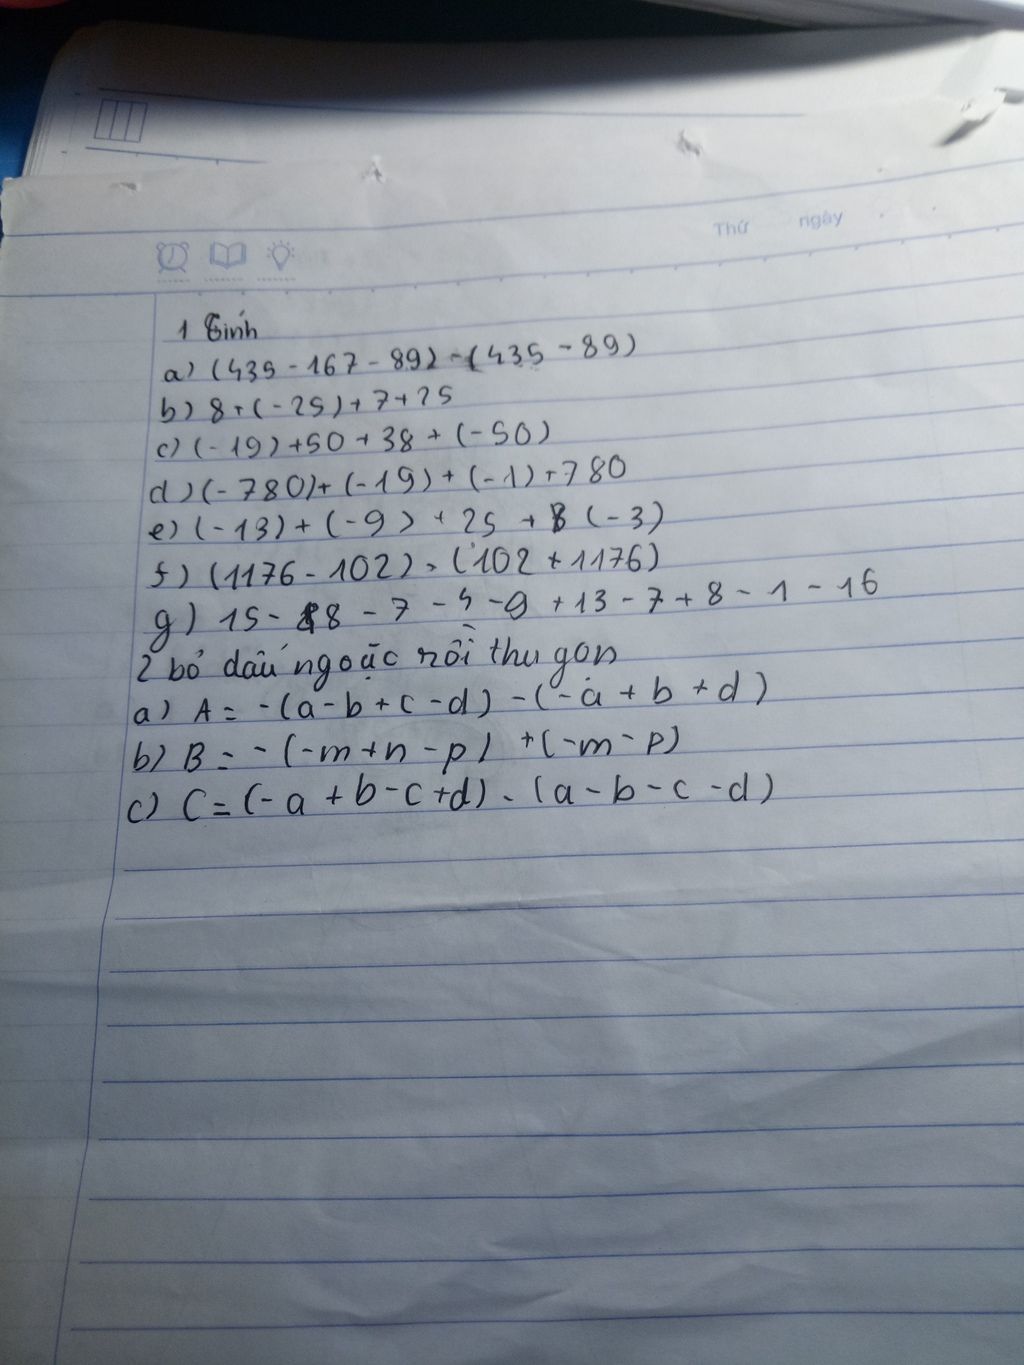 Thứ ngày
1 Tính
a) (435 - 167 - 89) - (435 - 89)
b) 8 + (-25) + 7 + 25
c) (-19) + 50 + 38 + (-50)
d) (-780) + (-19) + (-1) + 780
e) (-13) + (-9) + 25 + (-3)
f) (1176 - 102) - (102 + 1176)
g) 15 - 18 - 7 - 4 - 9 + 13 - 7 + 8 - 1 - 16
2 bỏ dấu ngoặc rồi thu gọn
a) A = -(a - b + c - d) - (-a + b + d)
b) B = -(-m + n - p) + (-m - p)
c) C = (-a + b - c + d) - (a - b - c - d)